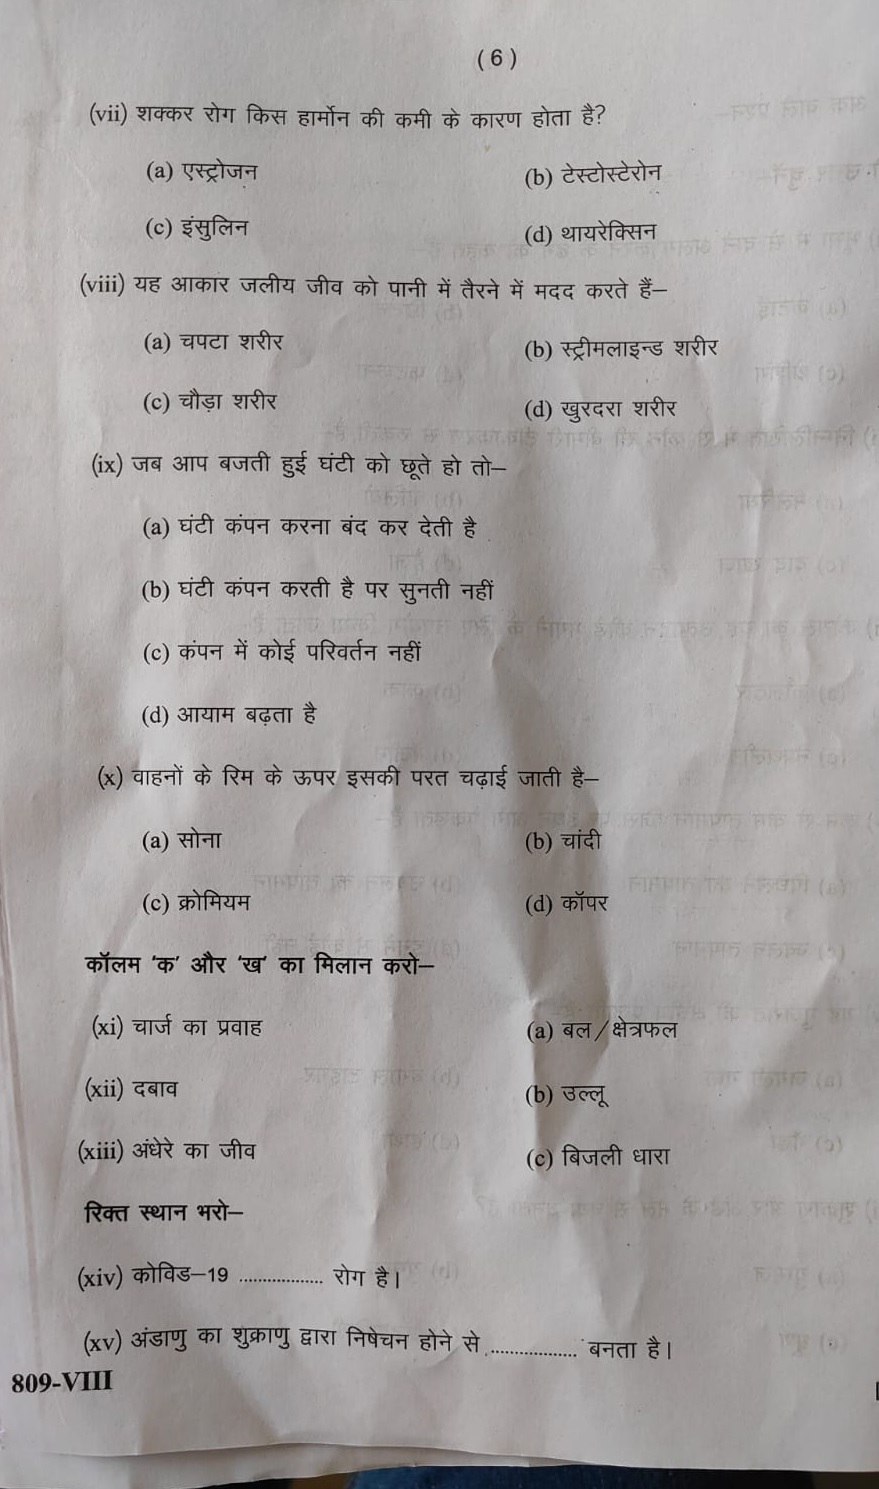 (6)
(vii) शक्कर रोग किस हार्मोन की कमी के कारण होता है?
(a) एस्ट्रोजन (b) टेस्टोस्टेरोन
(c) इंसुलिन (d) थायरेक्सिन
(viii) यह आकार जलीय जीव को पानी में तैरने में मदद करते हैं–
(a) चपटा शरीर (b) स्ट्रीमलाइन्ड शरीर
(c) चौड़ा शरीर (d) खुरदरा शरीर
(ix) जब आप बजती हुई घंटी को छूते हो तो–
(a) घंटी कंपन करना बंद कर देती है
(b) घंटी कंपन करती है पर सुनती नहीं
(c) कंपन में कोई परिवर्तन नहीं
(d) आयाम बढ़ता है
(x) वाहनों के रिम के ऊपर इसकी परत चढ़ाई जाती है–
(a) सोना (b) चांदी
(c) क्रोमियम (d) कॉपर
कॉलम 'क' और 'ख' का मिलान करो–
(xi) चार्ज का प्रवाह (a) बल/क्षेत्रफल
(xii) दबाव (b) उल्लू
(xiii) अंधेरे का जीव (c) बिजली धारा
रिक्त स्थान भरो–
(xiv) कोविड–19 .................. रोग है।
(xv) अंडाणु का शुक्राणु द्वारा निषेचन होने से .................. बनता है।
809-VIII